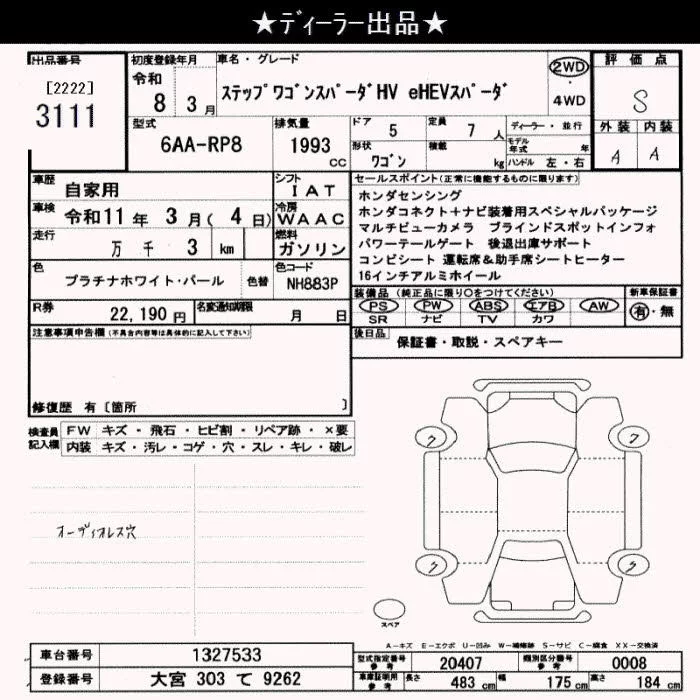 ★ディーラー出品★
出品番号
[2222]
3111
初度登録年月
令和
8 3月
車名・グレード
ステップワゴンスパーダHV eHEVスパーダ
2WD
・
4WD
評価点
S
外装 内装
A A
型式
6AA-RP8
排気量
1993
cc
ドア 5
定員 7 人
形状
ワゴン
積載
kg
ディーラー・並行
モデル年式 年
ハンドル 左・右
車歴 自家用
車検 令和11年 3月( 4日)
走行 万 千 3 km
シフト
IAT
冷房
WAAC
燃料
ガソリン
色
プラチナホワイト・パール
色替
色コード
NH883P
R券
22,190円
名変通知期限
月 日
セールスポイント(正常に機能するものに限ります)
ホンダセンシング
ホンダコネクト+ナビ装着用スペシャルパッケージ
マルチビューカメラ ブラインドスポットインフォ
パワーテールゲート 後退出庫サポート
コンビシート 運転席&助手席シートヒーター
16インチアルミホイール
装備品(純正品に限り○をつけてください)
PS PW ABS エアB AW
SR ナビ TV カワ
新車保証書
有・無
後日品
保証書・取説・スペアキー
注意事項申告欄(不具合内容等は具体的に記入して下さい)
修復歴 有〔箇所 〕
検査員記入欄
FW キズ・飛石・ヒビ割・リペア跡・×要
内装 キズ・汚レ・コゲ・穴・スレ・キレ・破レ
オーディオレス穴
ウ ウ
ウ ウ
スペア
A－キズ E－エクボ U－凹み W－補修跡 S－サビ C－腐食 XX－交換済
車台番号 1327533
登録番号 大宮 303 て 9262
型式指定番号参考 20407
類別区分番号参考 0008
車庫証明用参考
長さ 483 cm
幅 175 cm
高さ 184 cm